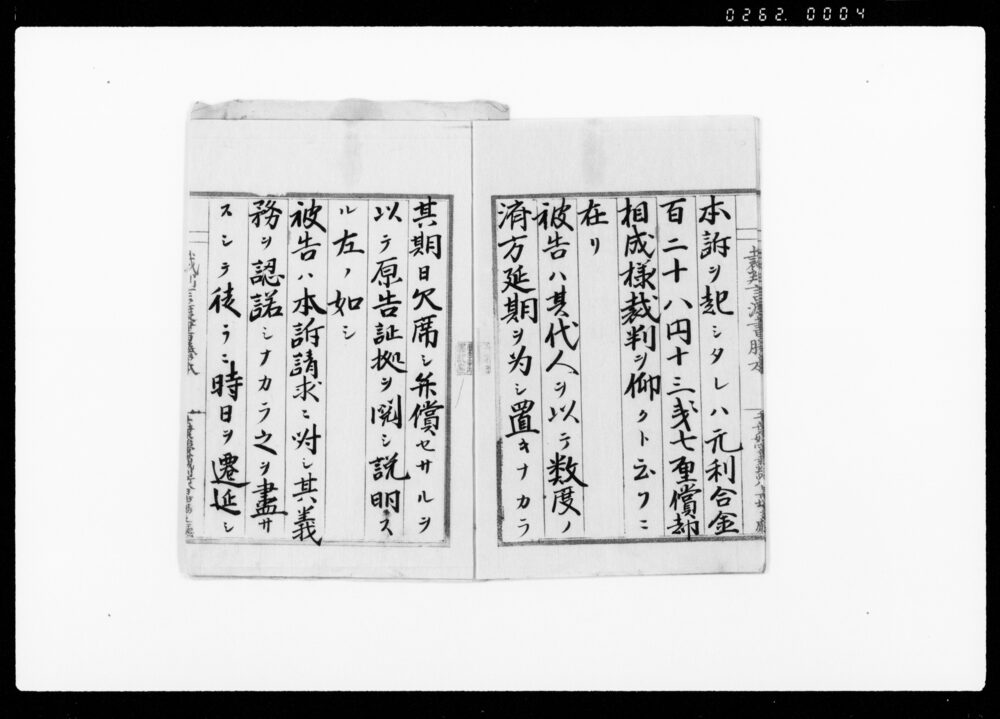 0262.0004
本訴ヲ起シタレハ元利合金
百二十八円十三戔七厘償却
相成様裁判ヲ仰クト云フニ
在リ
被告ハ其代人ヲ以テ数度ノ
済方延期ヲ为シ置キナカラ
其期日欠席シ弁償セサルヲ
以テ原告証拠ヲ閲シ説明ス
ル左ノ如シ
被告ハ本訴請求ニ対シ其義
務ヲ認諾シナカラ之ヲ尽サ
スシテ徒ラニ時日ヲ遷延シ